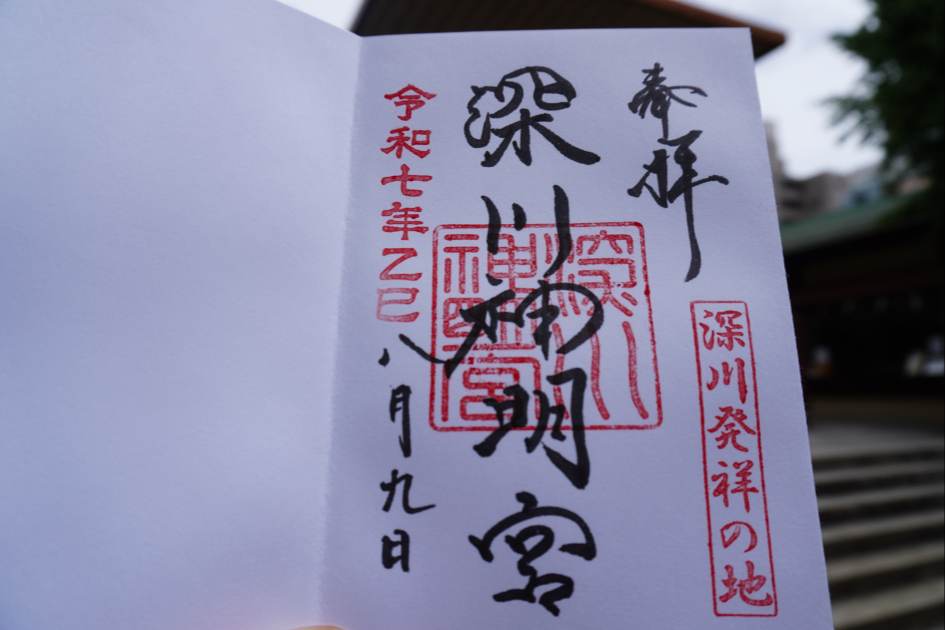 奉拝
深川発祥の地
深川神明宮
深川神明宮
令和七年乙巳八月九日